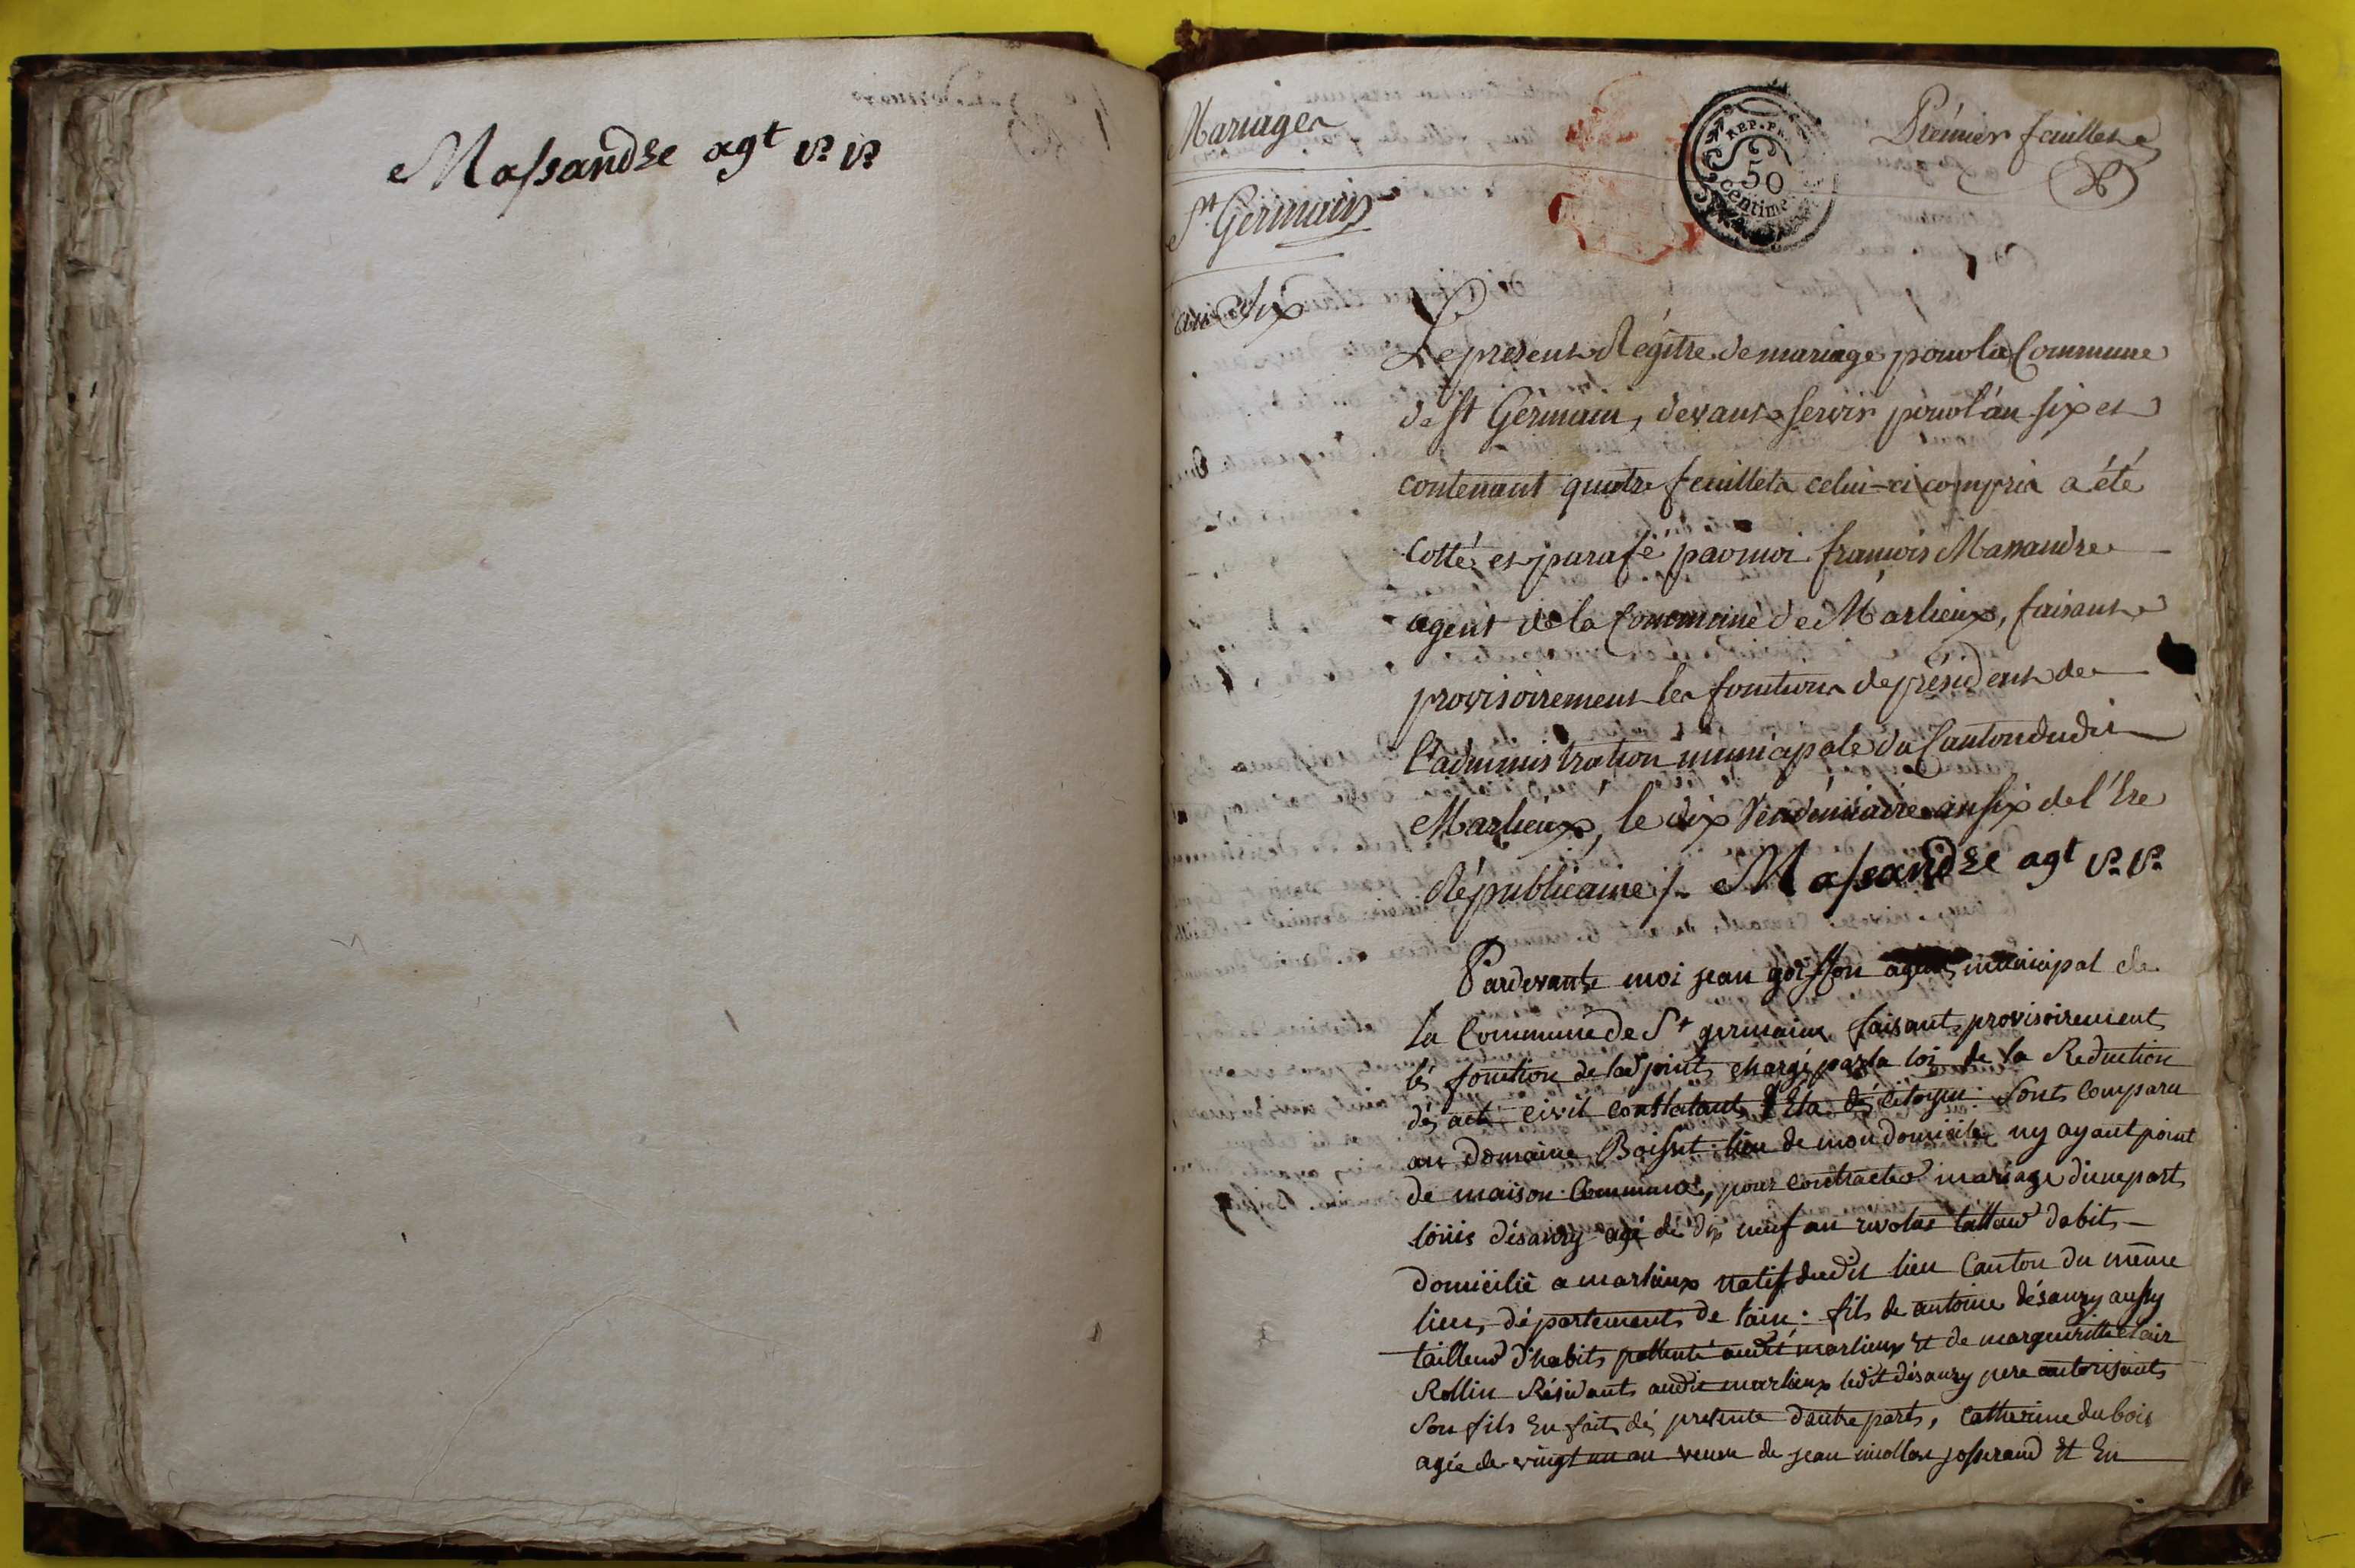 Massandre agt v.P. v.P.
Mariages
St Germain
an Six
REP. FR.
50
centime
Prémier feuillet
Le present Régitre de mariage pour la Commune
de St Germain, devant servir pour l'an six et
contenant quatre feuillets celui-ci compris a été
Cotté et parafé par moi françois Massandre
agent de la Commune de Marlieux, faisant
provisoirement les fonctions de président de
l'administration municipale du Canton dudit
Marlieux, le dix Vendémiaire an six de l'Ere
Républicaine /. Massandre agt v.P. v.P.
Pardevant moi jean goiffon agent municipal de
la Commune de St germain faisant provisoirement
lés fonction de ladjoint chargé par la loi de la Reduction
dés act civil constatant l'Eta dés citoyen sont comparu
au domaine Boisset lieu de mon domicile ny ayant point
de maison Commune, pour contracter mariage d'une part
loüis désauzy agé de dix neuf an revolus tallaur dabits
domicilié a marlieux natif dudit lieu Canton du même
lieu, département de lain : fils de antoine désauzy aussy
tailleur d'habits pattenté audit marlieux Et de margueritte clair
Rollin Résidants audit marlieux ledit désauzy pere autorisant
son fils En fait dé presente d'autre part, Catherine dubois
agée de vingt un an veuve de jean nicollas josserand Et En